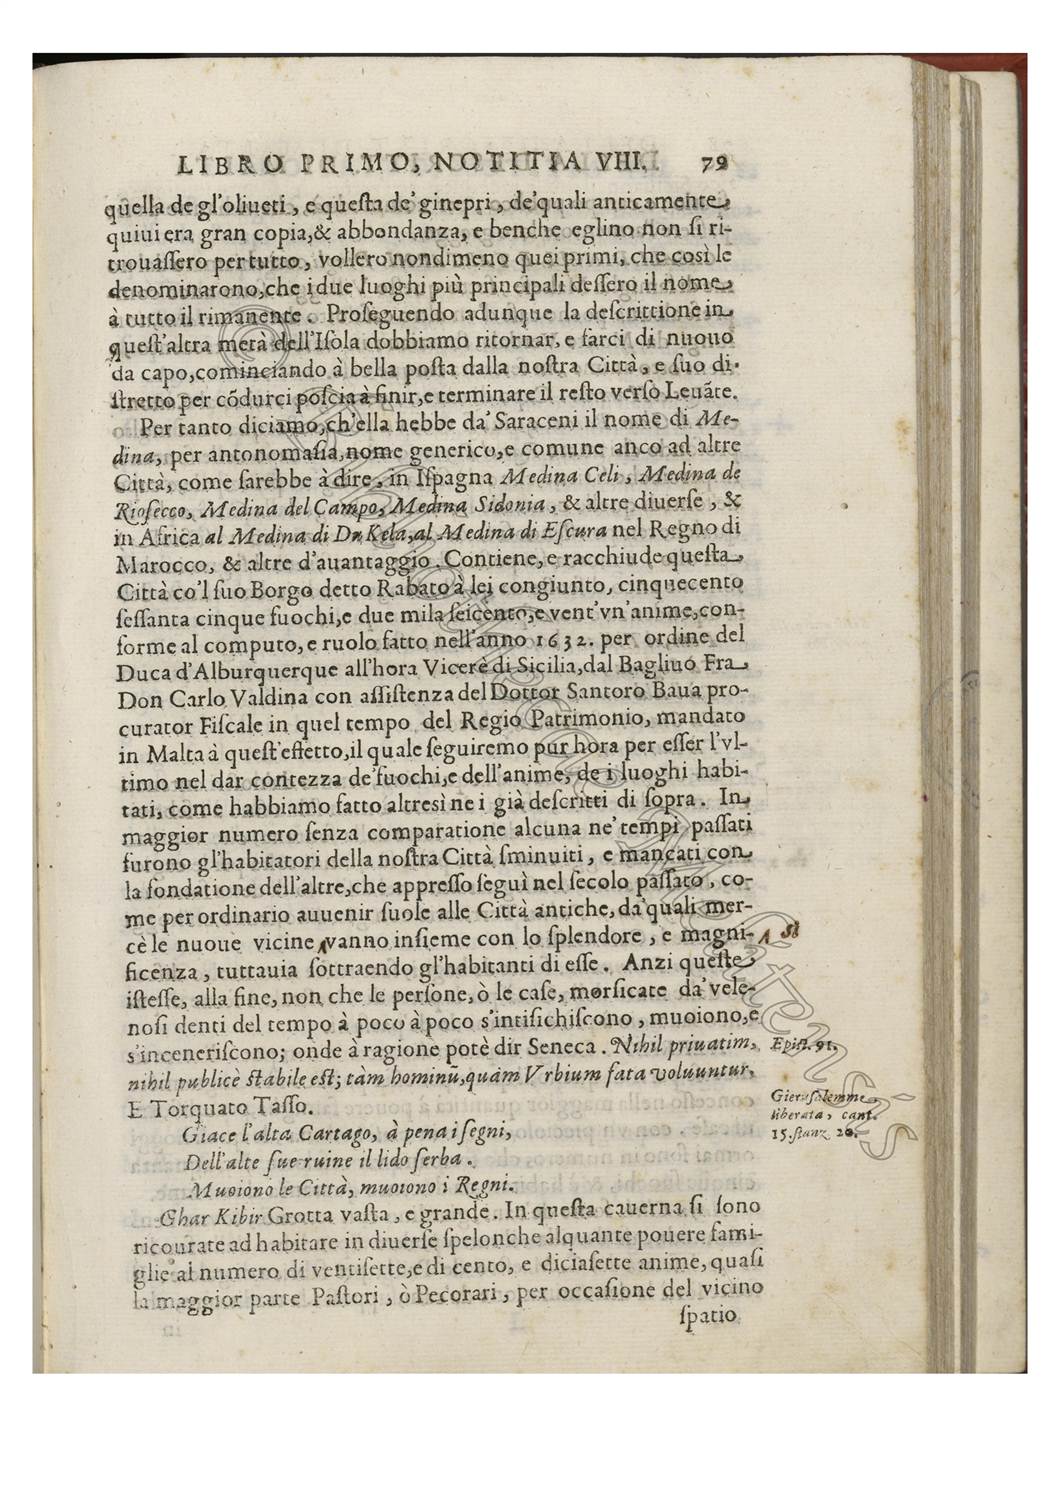 LIBRO PRIMO, NOTITIA VIII. 79
quella de gl'oliueti, e queſta de' ginepri, de' quali anticamente
quiui era gran copia, & abbondanza, e benche eglino non ſi ri-
trouaſſero per tutto, vollero nondimeno quei primi, che così le
denominarono, che i due luoghi più principali deſſero il nome
à tutto il rimanente. Proſeguendo adunque la deſcrittione in
queſt'altra metà dell'Iſola dobbiamo ritornar, e farci di nuouo
da capo, comīnciando à bella poſta dalla noſtra Città, e ſuo di-
ſtretto per cōdurci poſcia à finir, e terminare il reſto verſo Leuāte.
Per tanto diciamo, ch'ella hebbe da' Saraceni il nome di Me-
dina, per antonomaſia, nome generico, e comune anco ad altre
Città, come ſarebbe à dire, in Iſpagna Medina Celi, Medina de
Rioſecco, Medina del Campo, Medina Sidonia, & altre diuerſe, &
in Africa al Medina di Du Kela, al Medina di Eſcura nel Regno di
Marocco, & altre d'auantaggio. Contiene, e racchiude queſta
Città co'l ſuo Borgo detto Rabato à lei congiunto, cinquecento
ſeſſanta cinque fuochi, e due mila ſeicento, e vent'vn'anime, con-
forme al computo, e ruolo fatto nell'anno 1632. per ordine del
Duca d'Alburquerque all'hora Vicerè di Sicilia, dal Bagliuo Fra
Don Carlo Valdina con aſſiſtenza del Dottor Santoro Baua pro-
curator Fiſcale in quel tempo del Regio Patrimonio, mandato
in Malta à queſt'effetto, il quale ſeguiremo pur hora per eſſer l'vl-
timo nel dar contezza de' fuochi, e dell'anime, de i luoghi habi-
tati, come habbiamo fatto altresì ne i già deſcritti di ſopra. In
maggior numero ſenza comparatione alcuna ne' tempi paſſati
furono gl'habitatori della noſtra Città ſminuiti, e mancati con
la fondatione dell'altre, che appreſſo ſeguì nel ſecolo paſſato, co-
me per ordinario auuenir ſuole alle Città antiche, da' quali mer-
cè le nuoue vicine ʌ vanno inſieme con lo ſplendore, e magni- ʌ si
ficenza, tuttauia ſottraendo gl'habitanti di eſſe. Anzi queſte
iſteſſe, alla fine, non che le perſone, ò le caſe, morſicate da' vele-
noſi denti del tempo à poco à poco s'intiſichiſcono, muoiono, e
s'inceneriſcono; onde à ragione potè dir Seneca. Nihil priuatim, Epiſt. 91.
nihil publicè ſtabile eſt; tàm hominū, quàm Vrbium fata voluuntur.
E Torquato Taſſo.
Gieruſalemme
liberata, cant.
15. ſtanz. 20.
Giace l'alta Cartago, à pena i ſegni,
Dell'alte ſue ruine il lido ſerba.
Muoiono le Città, muoiono i Regni.
Ghar Kibir Grotta vaſta, e grande. In queſta cauerna ſi ſono
ricourate ad habitare in diuerſe ſpelonche alquante pouere fami-
glie al numero di ventiſette, e di cento, e diciaſette anime, quaſi
la maggior parte Paſtori, ò Pecorari, per occaſione del vicino
ſpatio